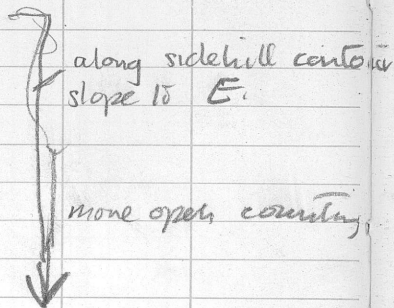 along sidehill contour
slope to E.
more open country